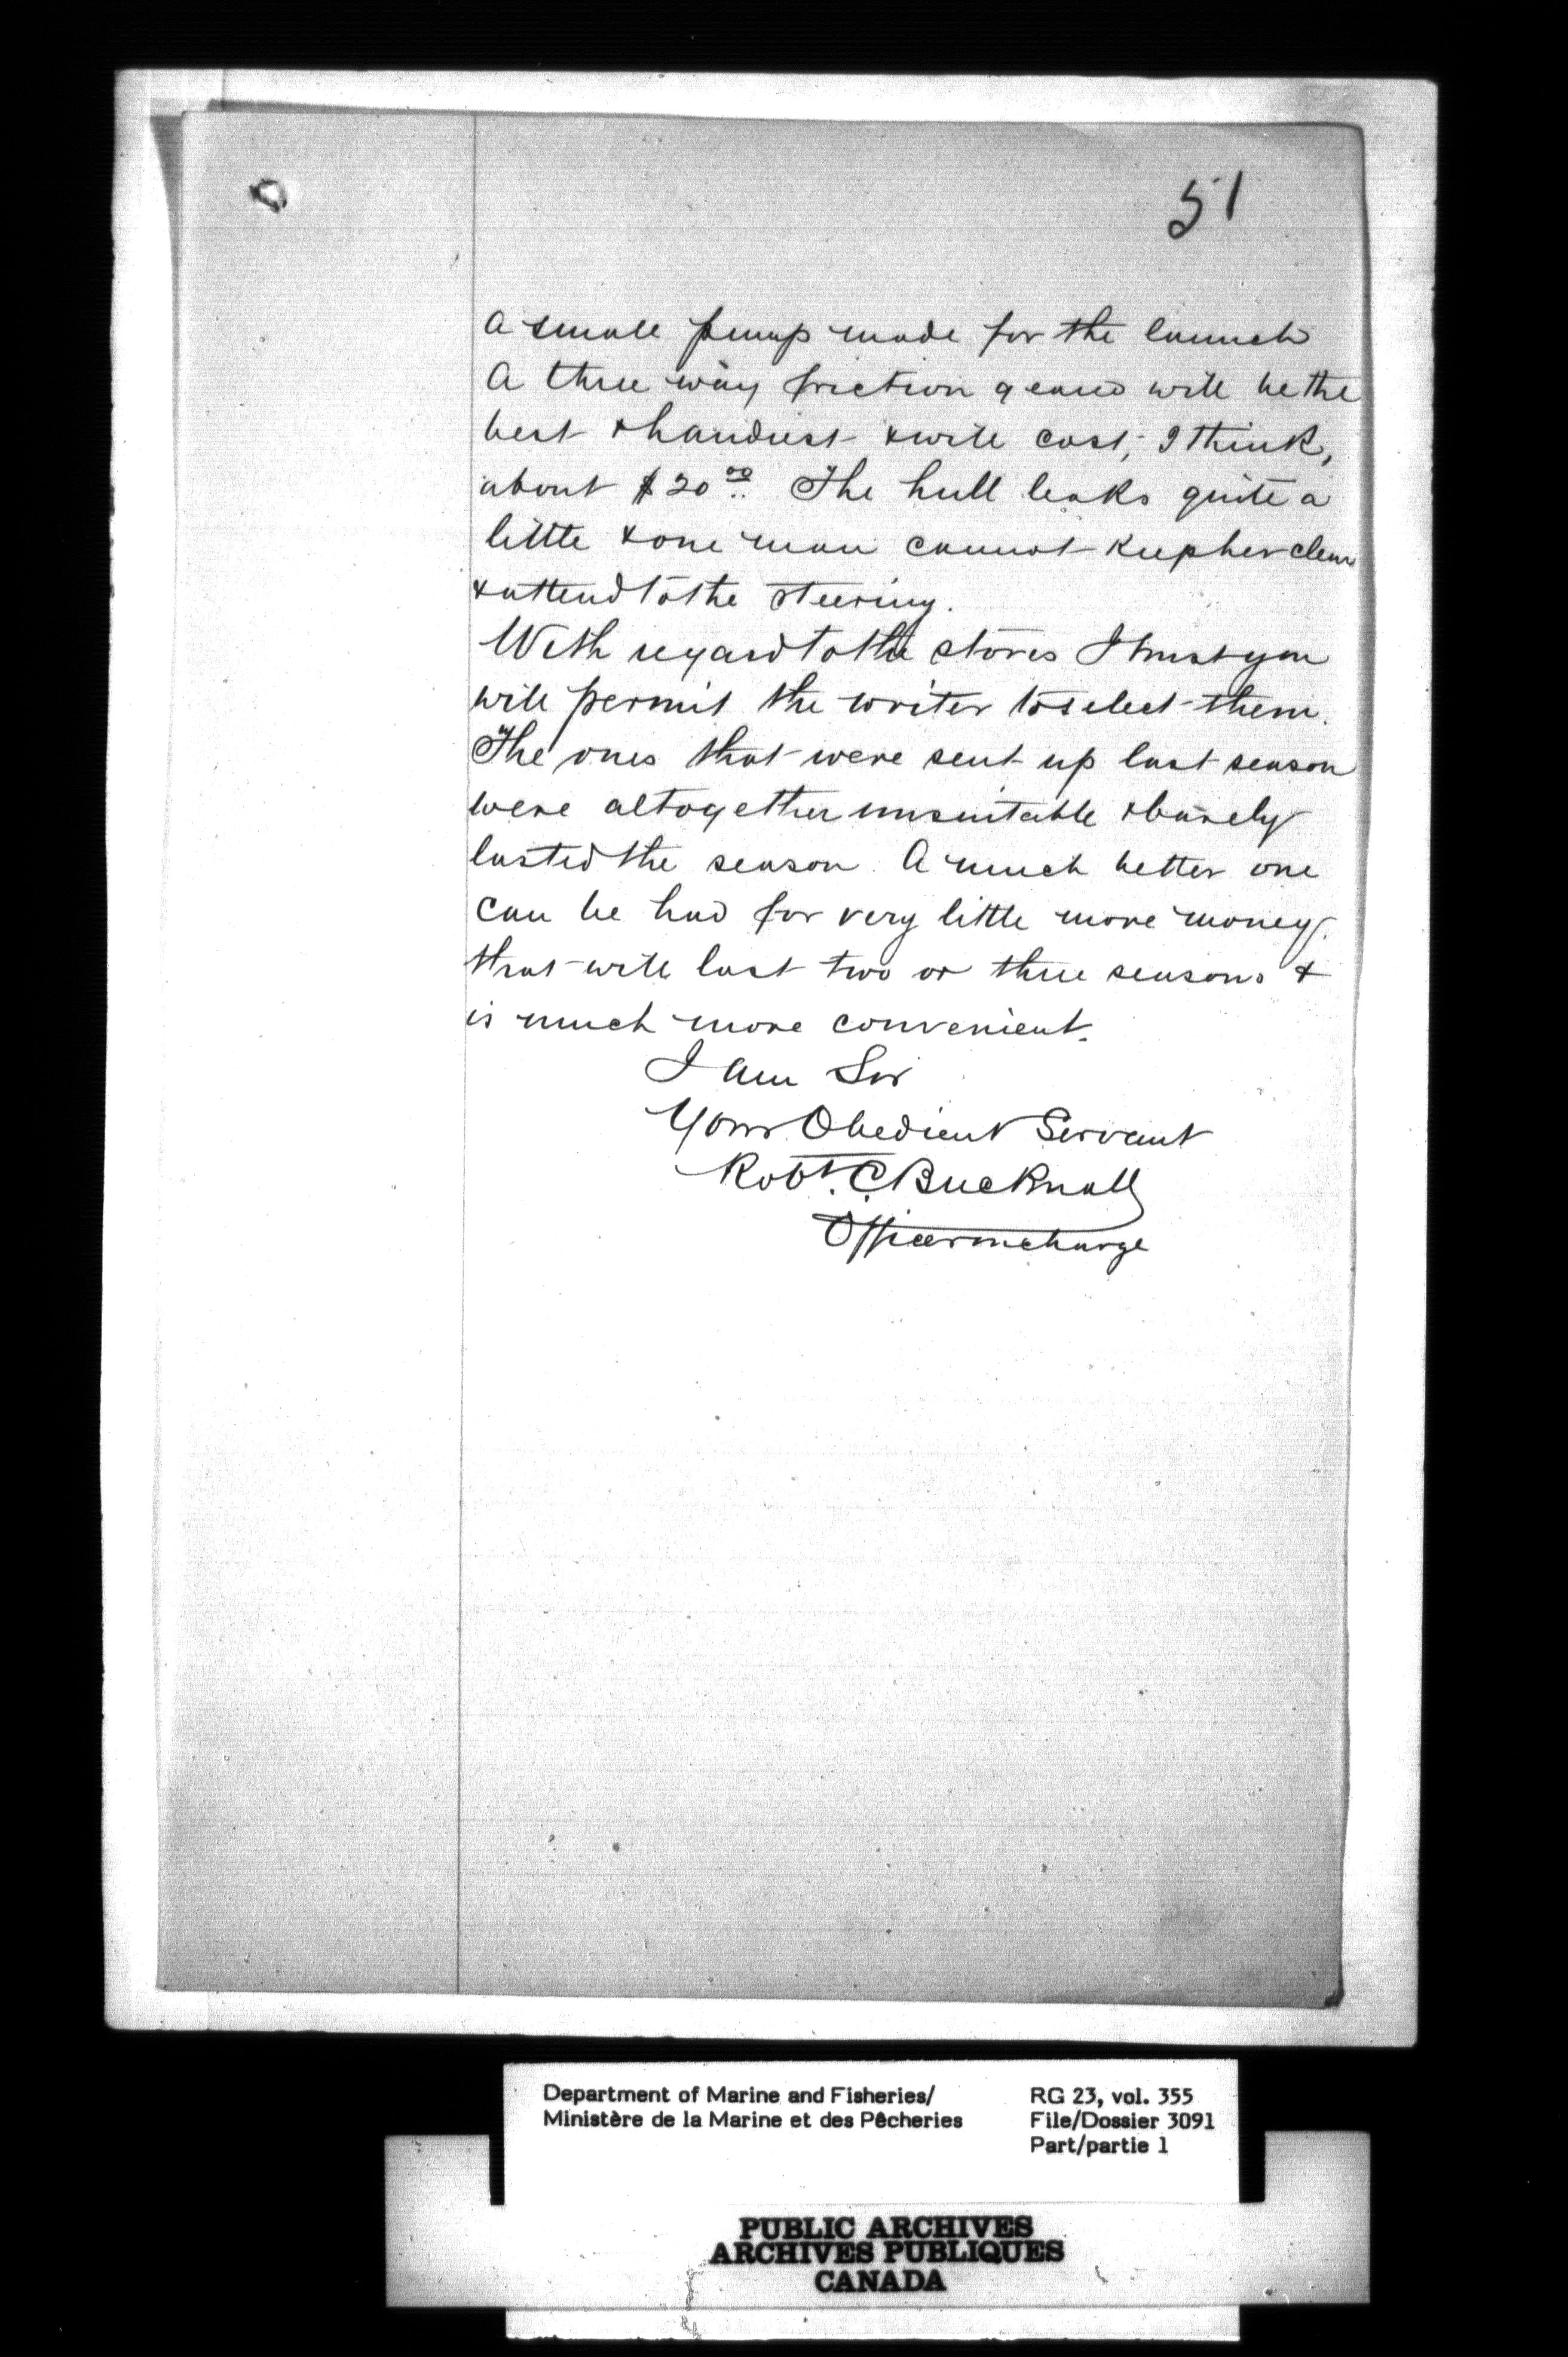 51
a small pump made for the launch
A three way friction geared will be the
best & handiest & will cost, I think,
about $20.00 The hull leaks quite a
little & one man cannot keep her clear
& attend to the steering.
With regard to the stoves I trust you
will permit the writer to select them.
The ones that were sent up last season
were altogether unsuitable & barely
lasted the season. A much better one
can be had for very little more money
that will last two or three seasons &
is much more convenient.
I am Sir
Your Obedient Servant
Robt. C. Bucknall
Officer in charge
Department of Marine and Fisheries/
Ministère de la Marine et des Pêcheries
RG 23, vol. 355
File/Dossier 3091
Part/partie 1
PUBLIC ARCHIVES
ARCHIVES PUBLIQUES
CANADA